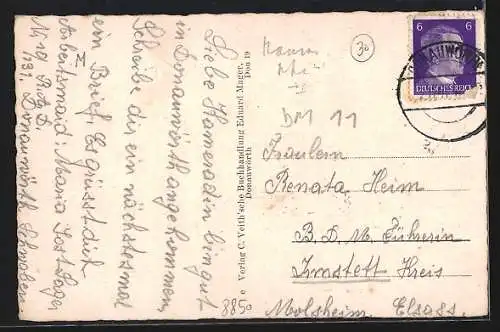 Liebe Kameradin bin gut
in Donauwörth angekommen,
Schreibe dir ein nächstesmal
ein Brief. Es grüsst dich
Arbeitsmaid: Maria Jost Lager
X
/131. Donauwörth Schwaben
e Verlag C. Veith'sche Buchhandlung Eduard Mager,
Donauwörth
Don 19
30
DM 11
8850
6 6
DEUTSCHES REICH
DONAUWÖRTH
Fräulein
Renata Heim
B. D. M. Führerin
Irmstett Kreis
Molsheim. Elsass.